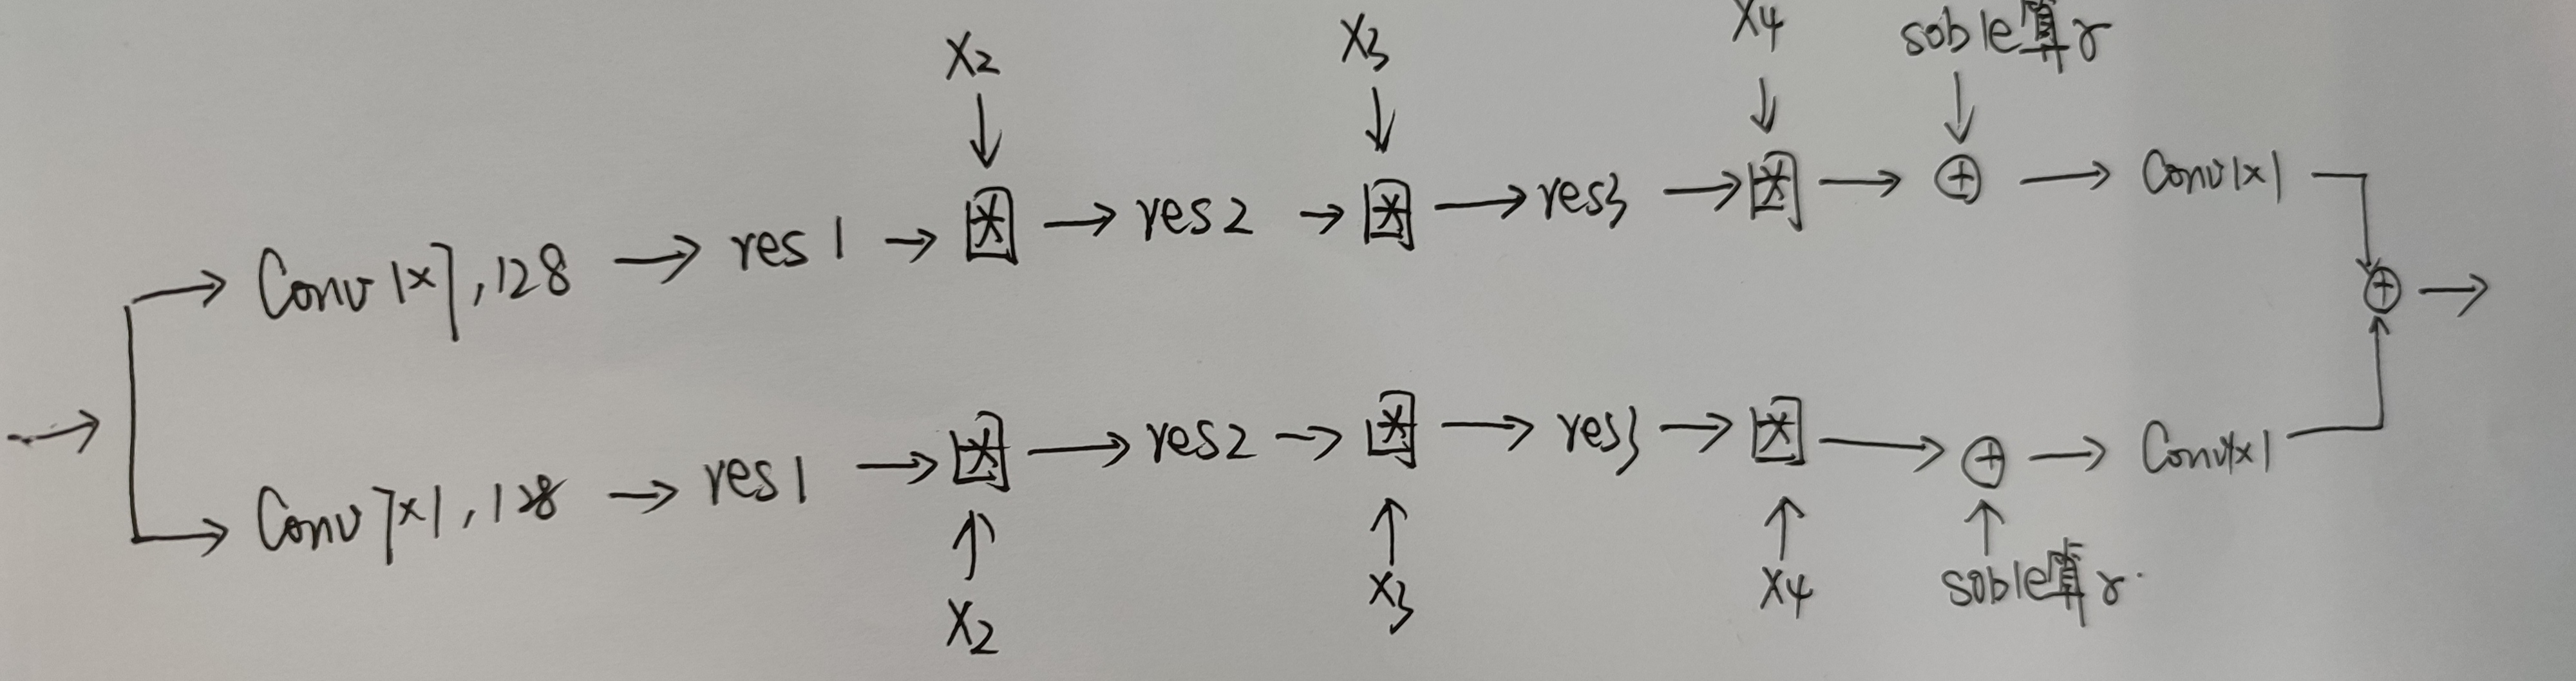 X2 X3 X4 soble算子
Conv 1×7,128 → res1 → * → res2 → * → res3 → * → ⊕ → Conv1×1
⊕ →
Conv 7×1,128 → res1 → * → res2 → * → res3 → * → ⊕ → Conv1×1
X2 X3 X4 soble算子